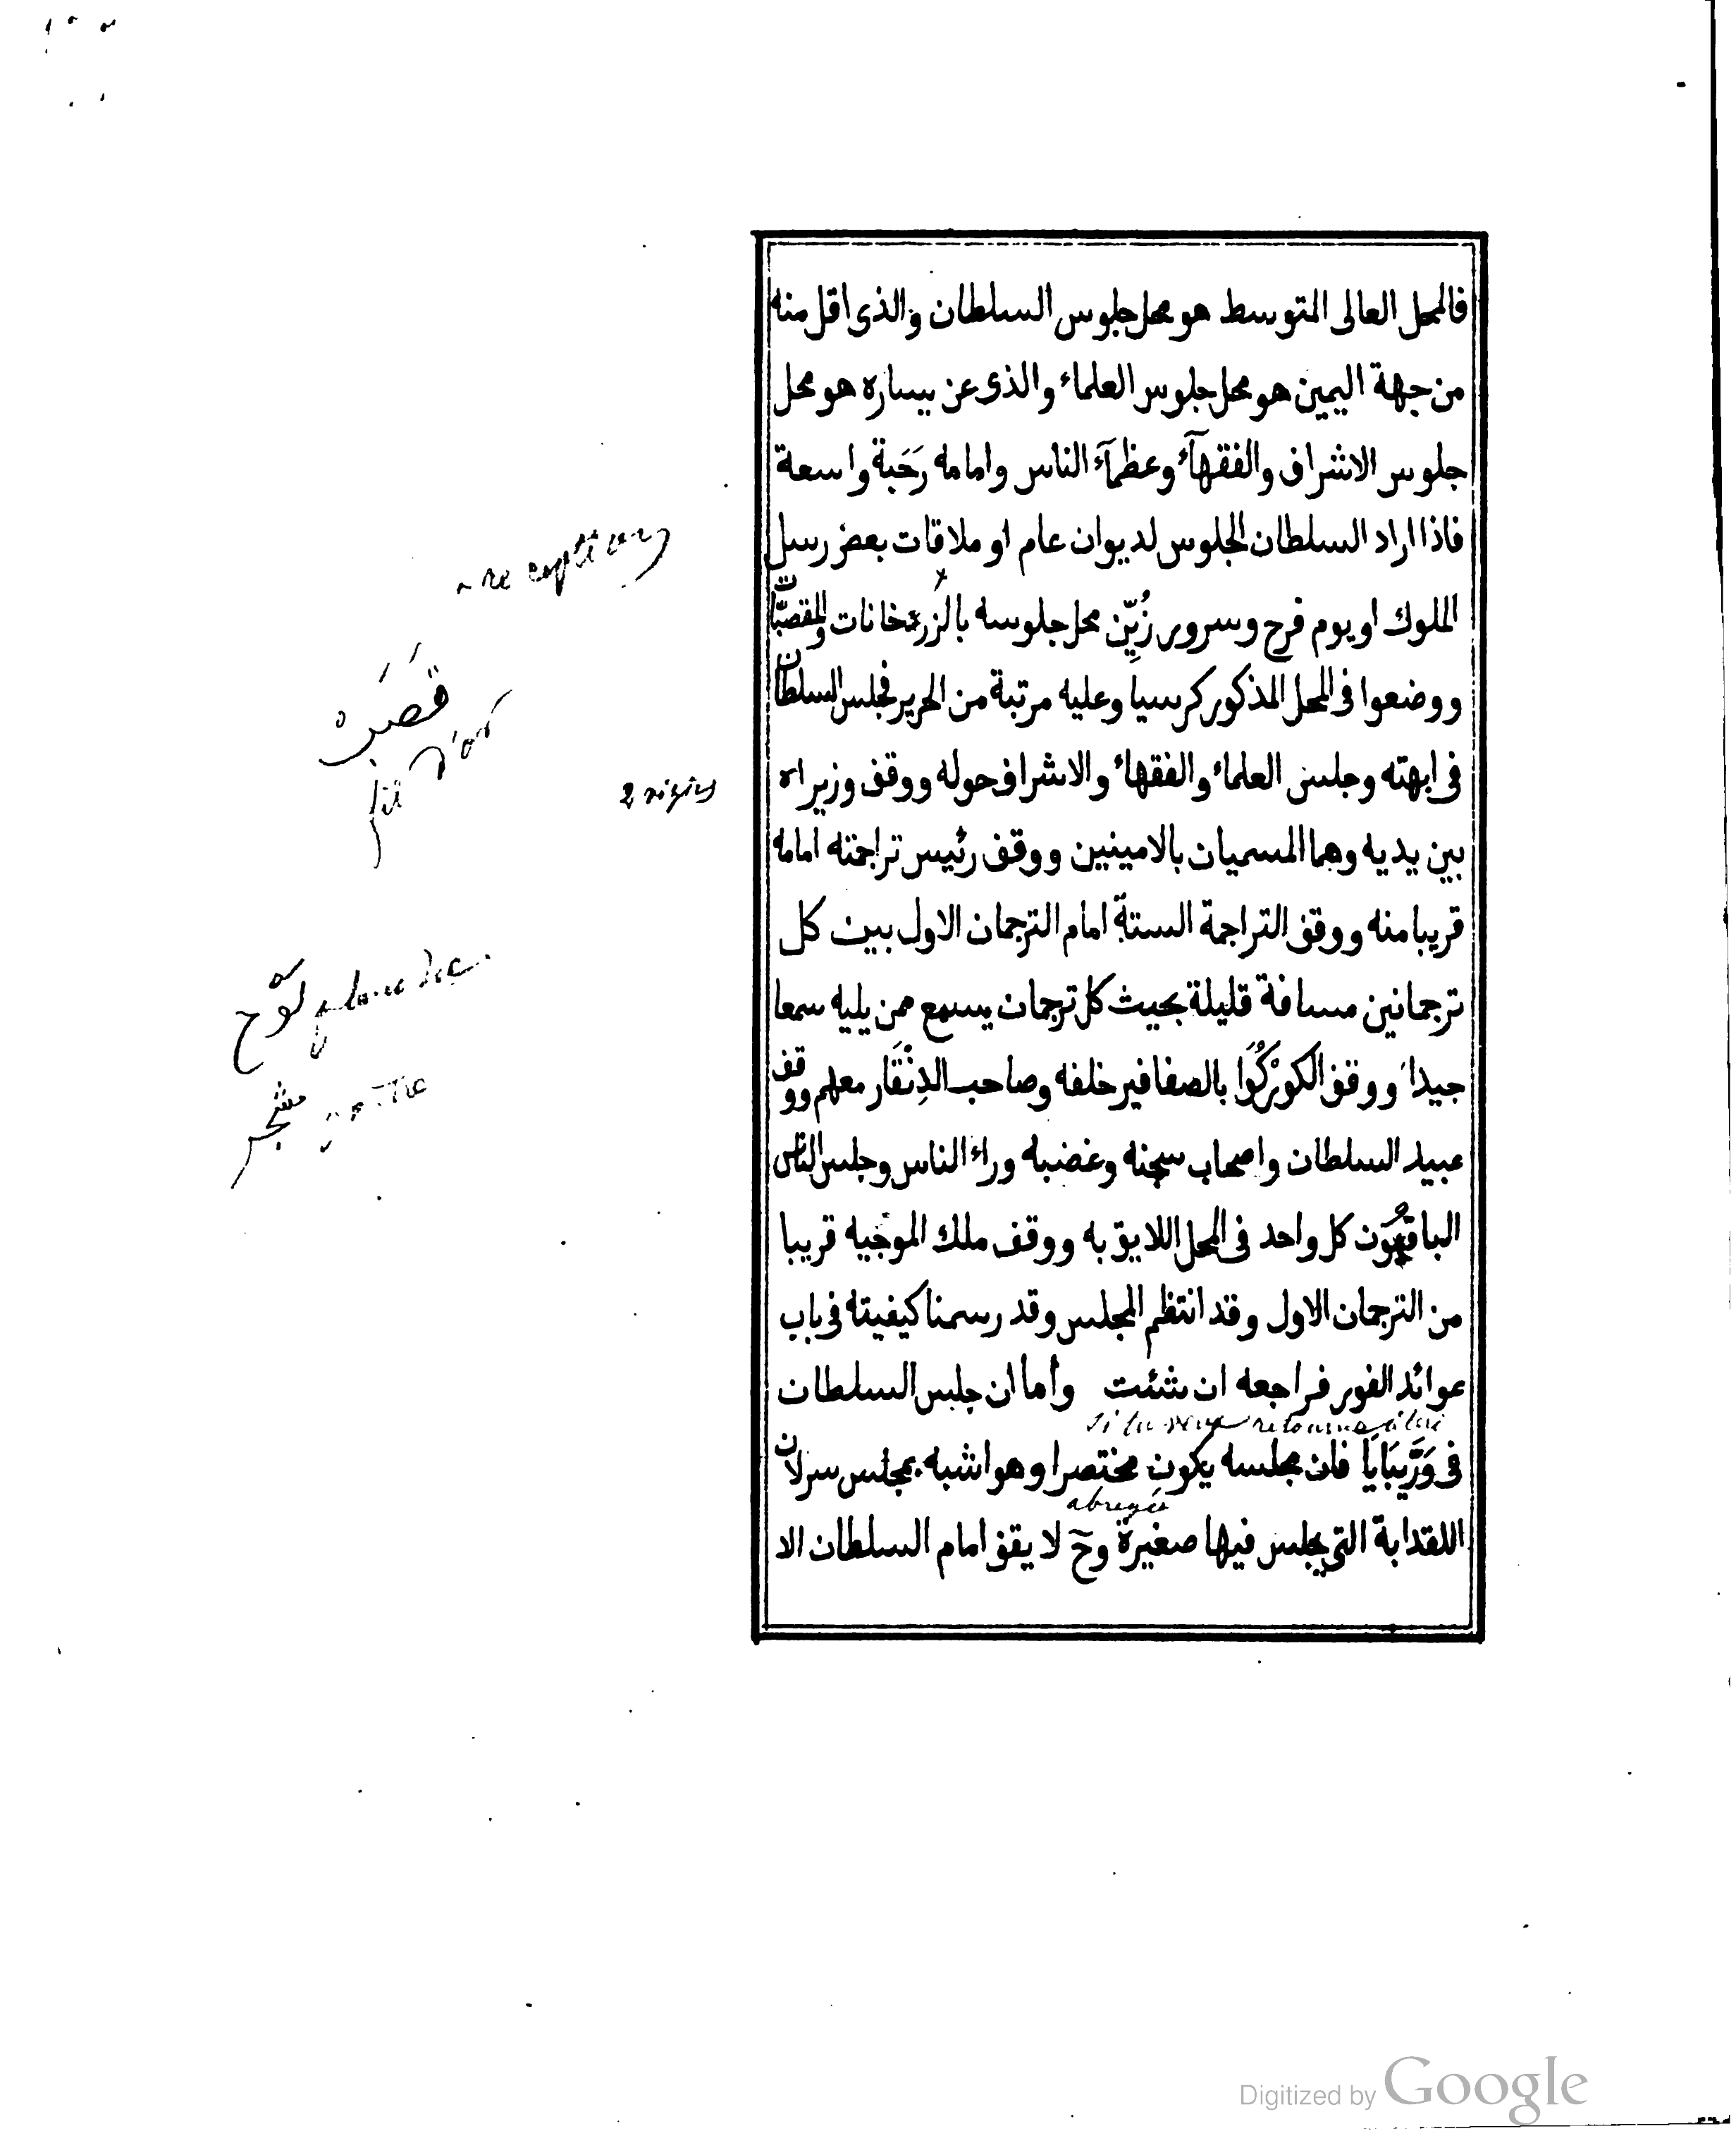 فالمحل العالى المتوسط هو محل جلوس السلطان والذى اقل منه
من جهة اليمين هو محل جلوس العلماء والذى عن يساره هو محل
جلوس الاشراف والفقهآء وعظمآء الناس وامامه رَحَبة واسعة
فاذا اراد السلطان الجلوس لديوان عام او ملاقات بعض رسل
الملوك او يوم فرح وسرور زُيِّن محل جلوسه بالزردخانات والمقصبّات
ووضعوا فى المحل المذكور كرسيا وعليه مرتبة من الحرير فجلس السلطان
فى ابهته وجلس العلماء والفقهاء والاشراف حوله ووقف وزيراه
بين يديه وهما المسميان بالامينين ووقف رئيس تراجمته امامه
قريبا منه ووقف التراجمة الستة امام الترجمان الاول بين كل
ترجمانين مسافة قليلة بحيث كل ترجمان يسمع ممن يليه سمعا
جيدا ووقف الكورْكُوَا بالصفافير خلفه وصاحب الدِنْقَار معهم ووقف
عبيد السلطان واصحاب سجنه وغضبه وراء الناس وجلس الناس
الباقون كل واحد فى المحل اللايق به ووقف ملك الموجيه قريبا
من الترجمان الاول وقد انتظم المجلس وقد رسمنا كيفيته فى باب
عوائد الفور فراجعه ان شئت وأما ان جلس السلطان
si tu veux retourne à lui
فى وَرَّيبَايَا فان مجلسه يكون مختصرا وهو اشبه بمجلس سرلان
abrégée
اللقدابة التى يجلس فيها صغيرة وحَ لا يقف امام السلطان الا
reception
قَصَبَ
fil d'or
2 vizirs
لوّح
مشجر
Digitized by Google